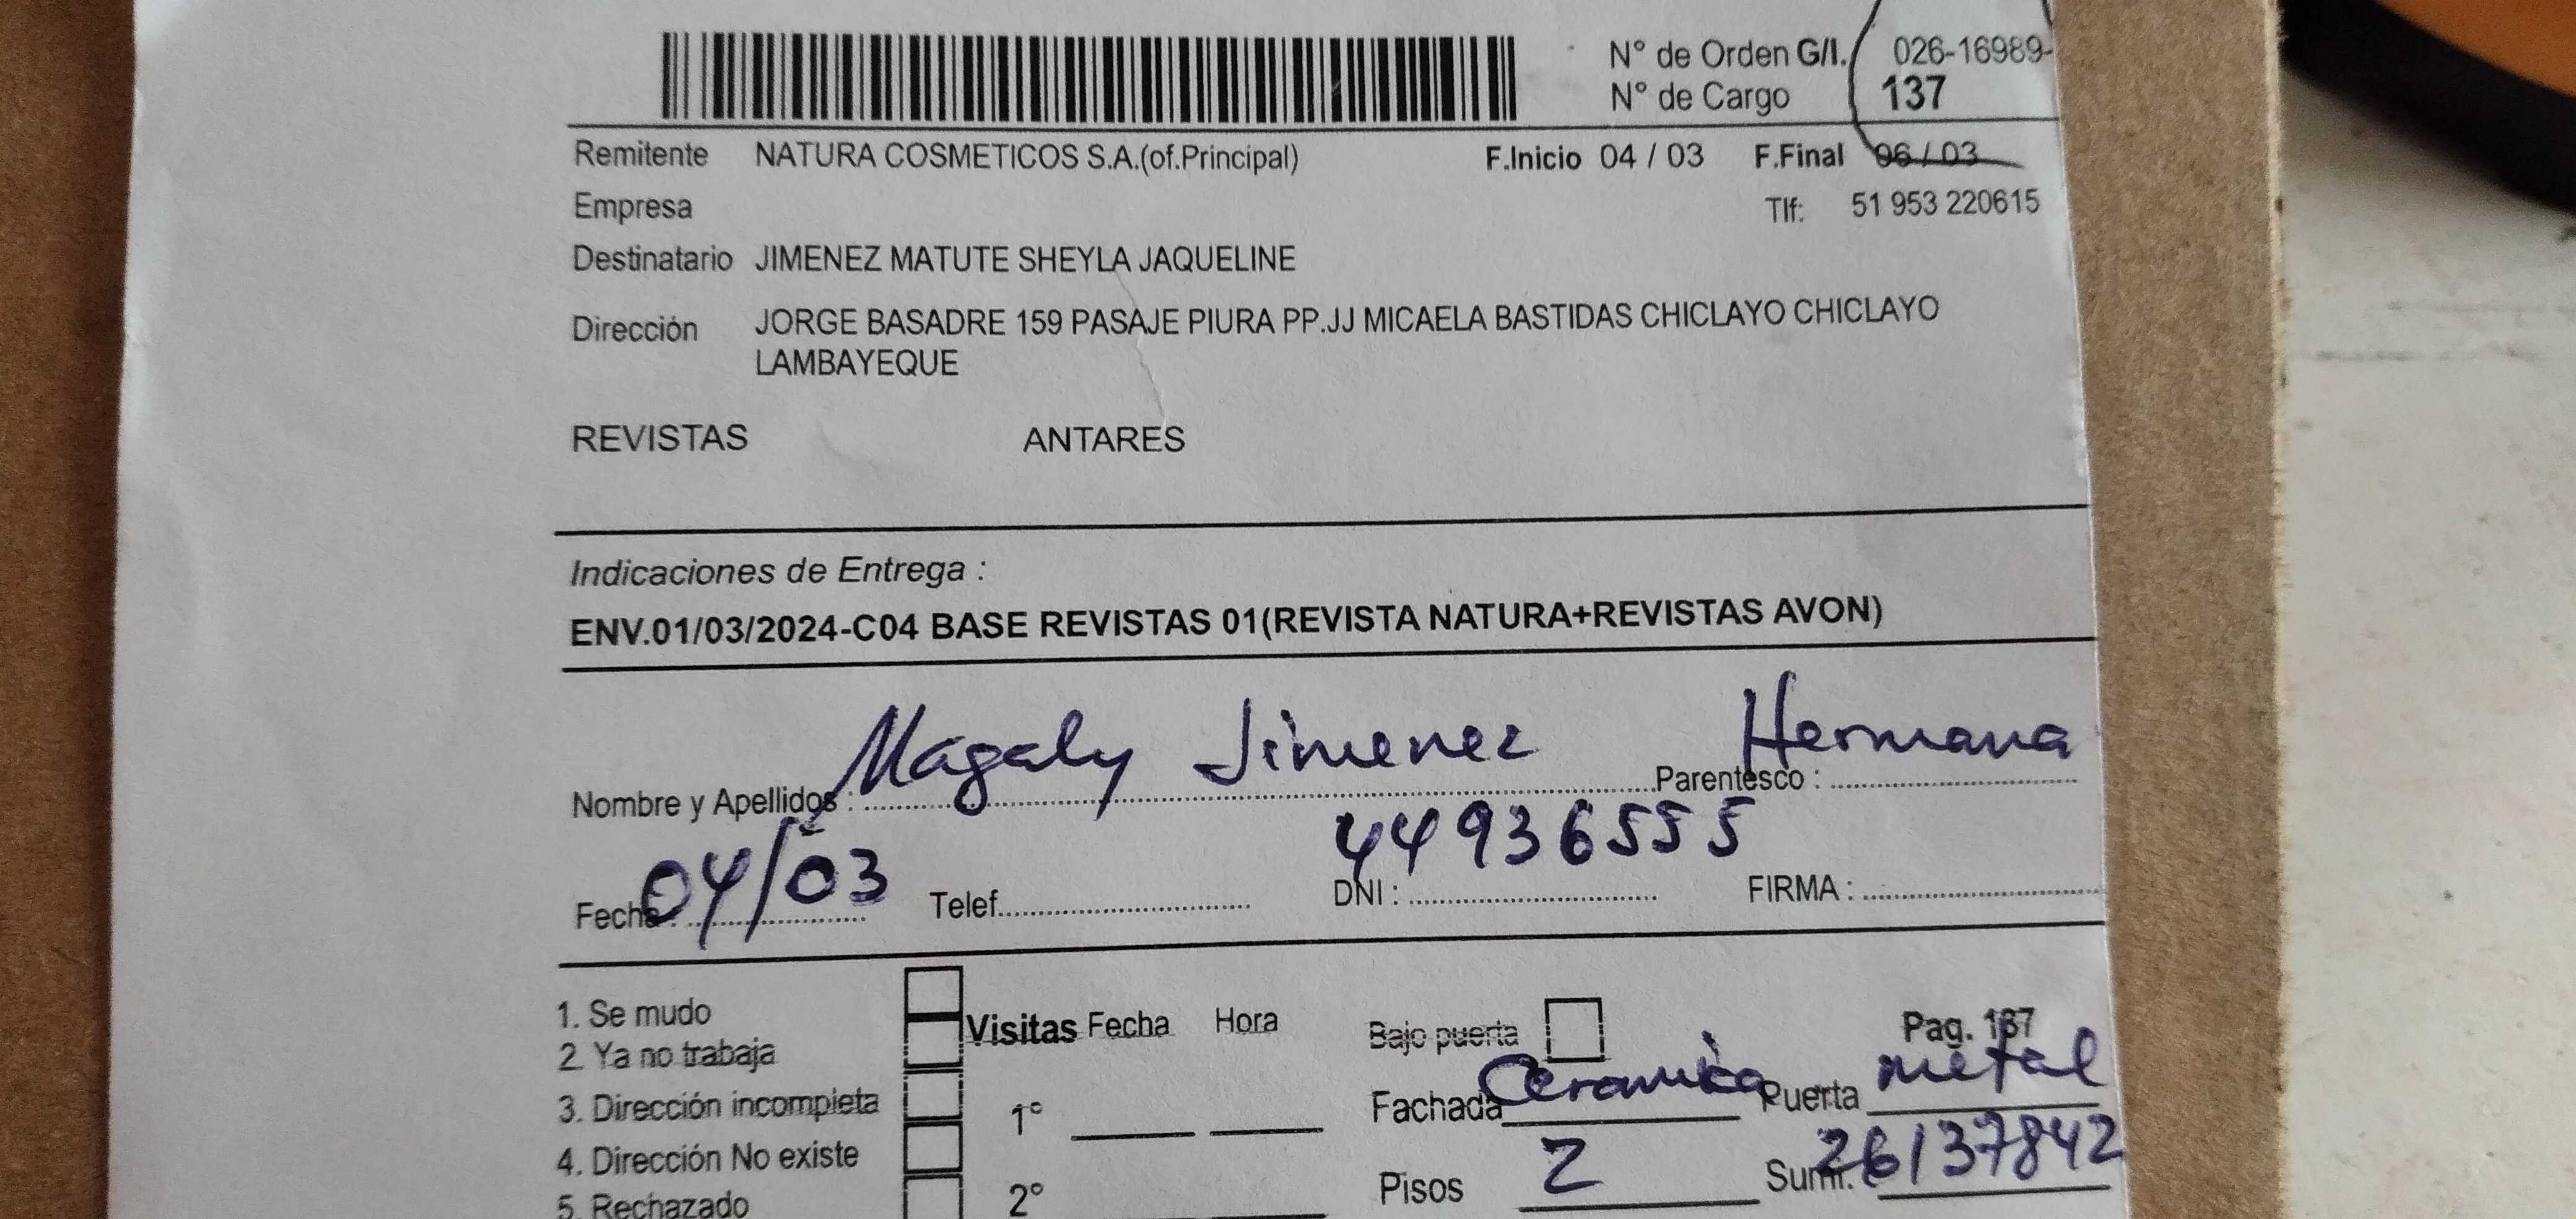 N° de Orden G/I. 026-16989-
N° de Cargo 137
Remitente NATURA COSMETICOS S.A.(of.Principal) F.Inicio 04 / 03 F.Final 06 / 03
Empresa Tlf: 51 953 220615
Destinatario JIMENEZ MATUTE SHEYLA JAQUELINE
Dirección JORGE BASADRE 159 PASAJE PIURA PP.JJ MICAELA BASTIDAS CHICLAYO CHICLAYO
LAMBAYEQUE
REVISTAS ANTARES
Indicaciones de Entrega :
ENV.01/03/2024-C04 BASE REVISTAS 01(REVISTA NATURA+REVISTAS AVON)
Nombre y Apellidos : Magaly Jimenez Parentesco : Hermana
Fecha : 04/03 Telef. DNI : 44936555 FIRMA :
1. Se mudo Visitas Fecha Hora Bajo puerta Pag. 137
2. Ya no trabaja
3. Dirección incompleta 1° Fachada Ceramica Puerta metal
4. Dirección No existe
5. Rechazado 2° Pisos 2 Sumi. 26137842